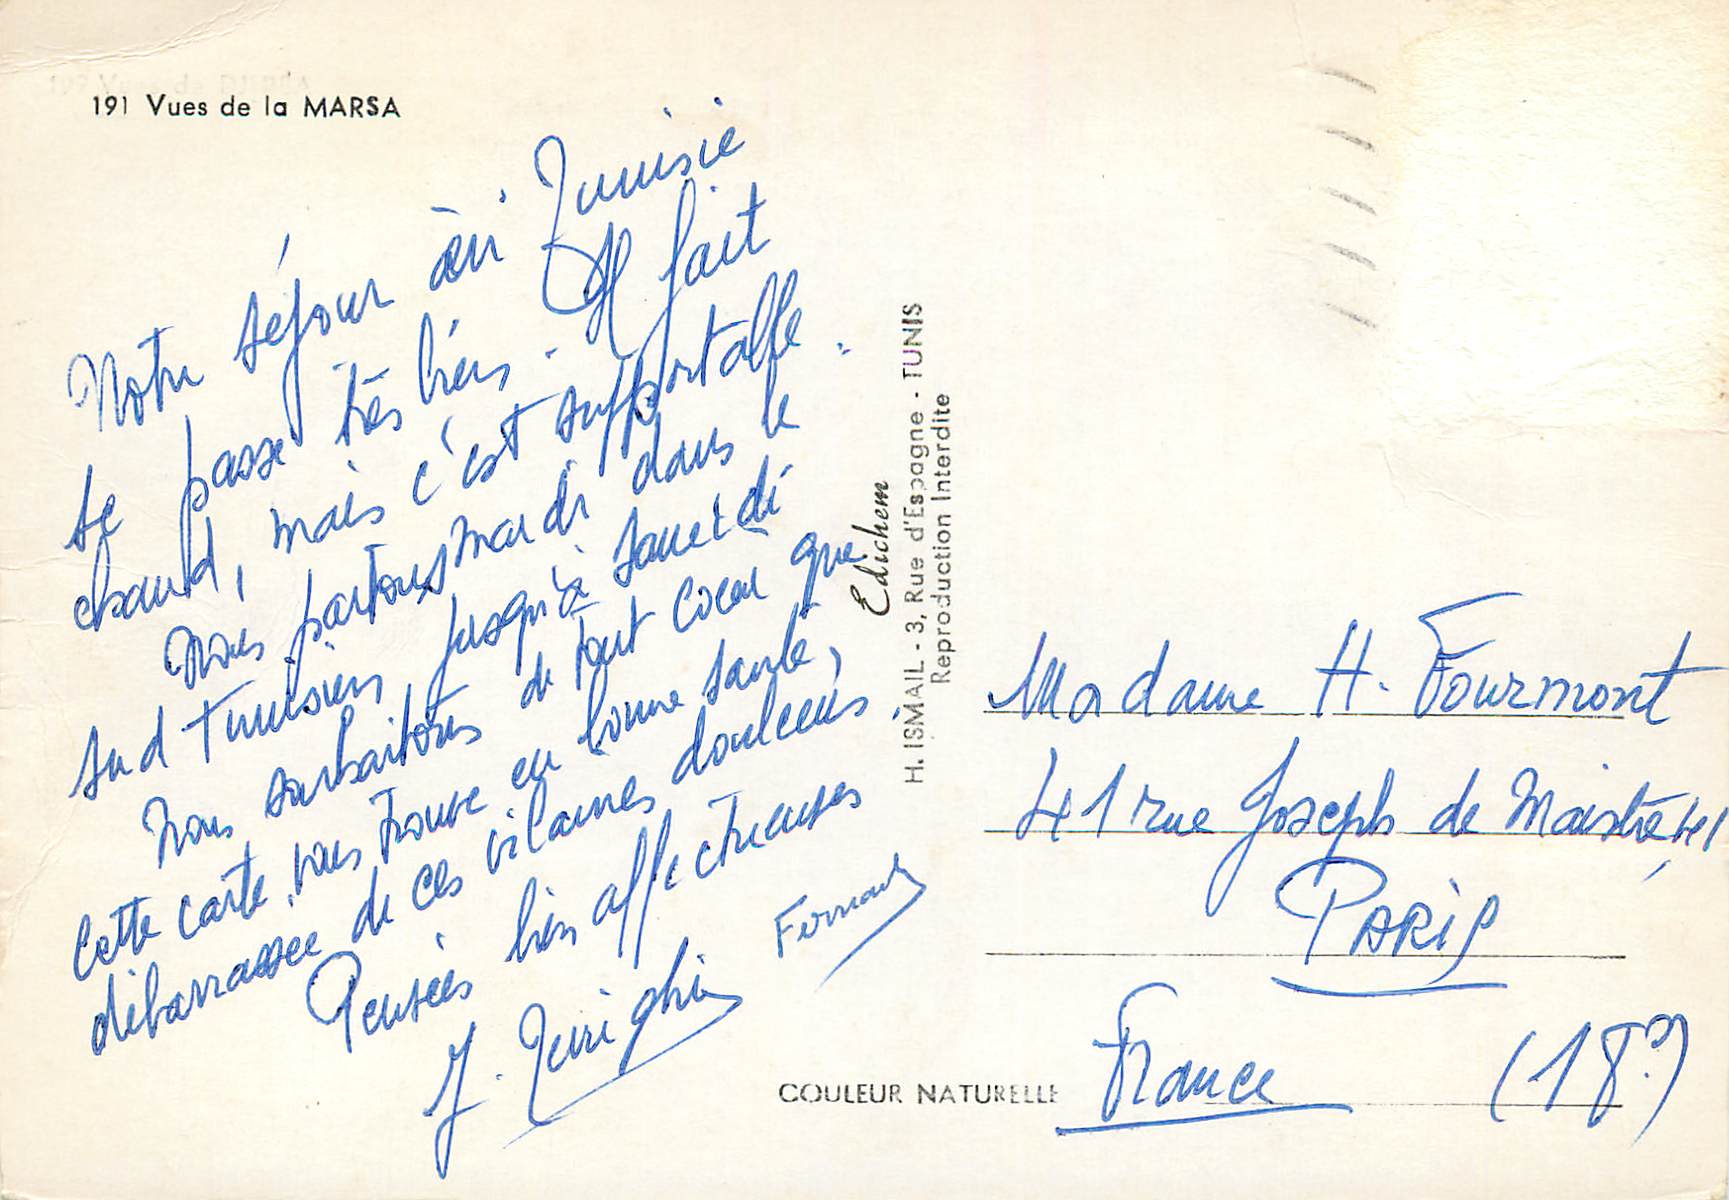 191 Vues de la MARSA
Notre séjour en Tunisie
se passe très bien. Il fait
chaud, mais c'est supportable.
Nous partons mardi dans le
sud Tunisien jusqu'à samedi
Nous souhaitons de tout coeur que
cette carte vous trouve en bonne santé,
débarrassée de ces vilaines douleurs.
Pensées bien affectueuses
Fernand
J.
Edichem
H. ISMAIL - 3, Rue d'Espagne - TUNIS
Reproduction Interdite
COULEUR NATURELLE
Madame H. Fourmont
41 rue Joseph de Maistre
PARIS
France (18e)